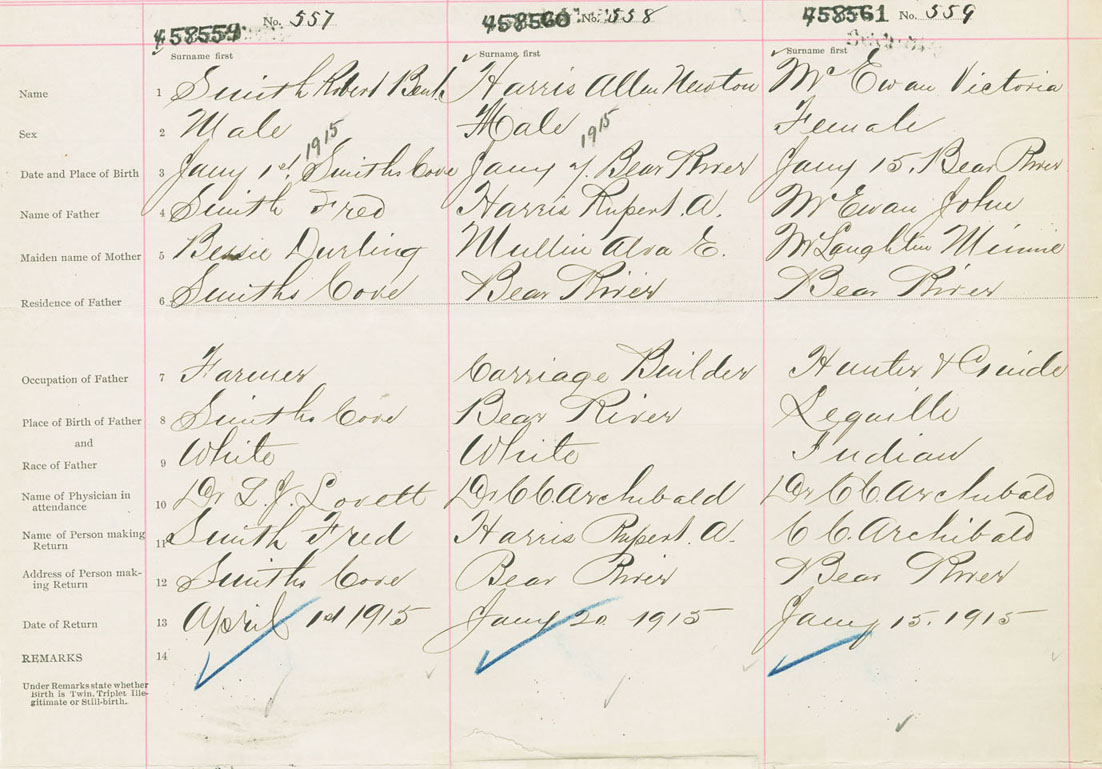 458559 No. 557 458560 No. 558 458561 No. 559
Surname first Surname first Surname first
Name 1 Smith Robert Harris Allen Newton McEwan Victoria
Sex 2 Male Male Female
1915 1915
Date and Place of Birth 3 Jany 1st, Smiths Cove Jany 7. Bear River Jany 15, Bear River
Name of Father 4 Smith Fred Harris Rupert. A. McEwan John
Maiden name of Mother 5 Bessie Durling Mullin Alva E. McLaughlin Minnie
Residence of Father 6 Smiths Cove Bear River Bear River
Occupation of Father 7 Farmer Carriage Builder Hunter & Guide
Place of Birth of Father 8 Smiths Cove Bear River Lequille
and
Race of Father 9 White White Indian
Name of Physician in
attendance 10 Dr L. J. Lovett Dr C C Archibald Dr C C. Archibald
Name of Person making
Return 11 Smith Fred Harris Rupert. A. C C. Archibald
Address of Person mak-
ing Return 12 Smiths Cove Bear River Bear River
Date of Return 13 April 1st 1915 Jany 20 1915 Jany 15. 1915
REMARKS 14
Under Remarks state whether
Birth is Twin, Triplet Ille-
gitimate or Still-birth.